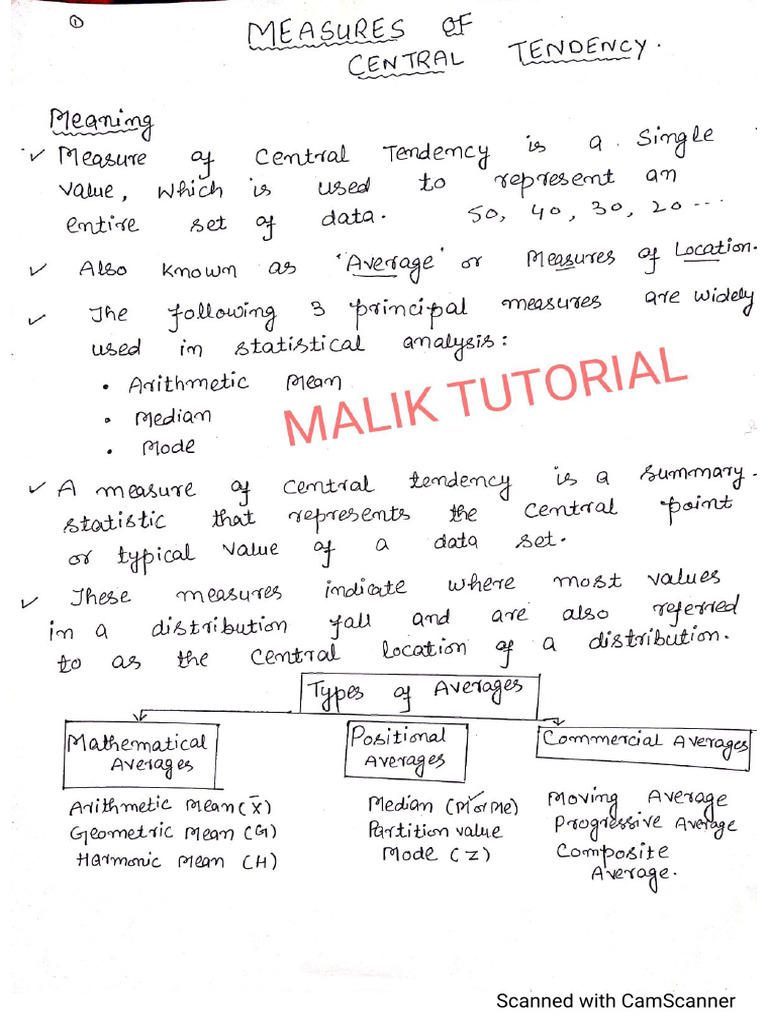 ①
MEASURES OF
CENTRAL TENDENCY.
Meaning
✓ Measure of Central Tendency is a Single
value, which is used to represent an
entire set of data. 50, 40, 30, 20 ...
✓ Also known as 'Average' or Measures of Location.
✓ The following 3 principal measures are widely
used in statistical analysis:
• Arithmetic Mean
• Median
• Mode
MALIK TUTORIAL
✓ A measure of central tendency is a summary
statistic that represents the central point
or typical value of a data set.
✓ These measures indicate where most values
in a distribution fall and are also referred
to as the central location of a distribution.
Types of Averages
Mathematical
Averages
Arithmetic Mean (X̄)
Geometric Mean (G)
Harmonic Mean (H)
Positional
Averages
Median (M or Me)
Partition value
Mode (Z)
Commercial Averages
Moving Average
Progressive Average
Composite
Average.
Scanned with CamScanner